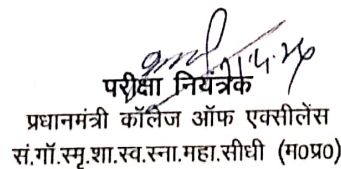 परीक्षा नियंत्रक
प्रधानमंत्री कॉलेज ऑफ एक्सीलेंस
सं.गॉ.स्मृ.शा.स्व.स्ना.महा.सीधी (म0प्र0)